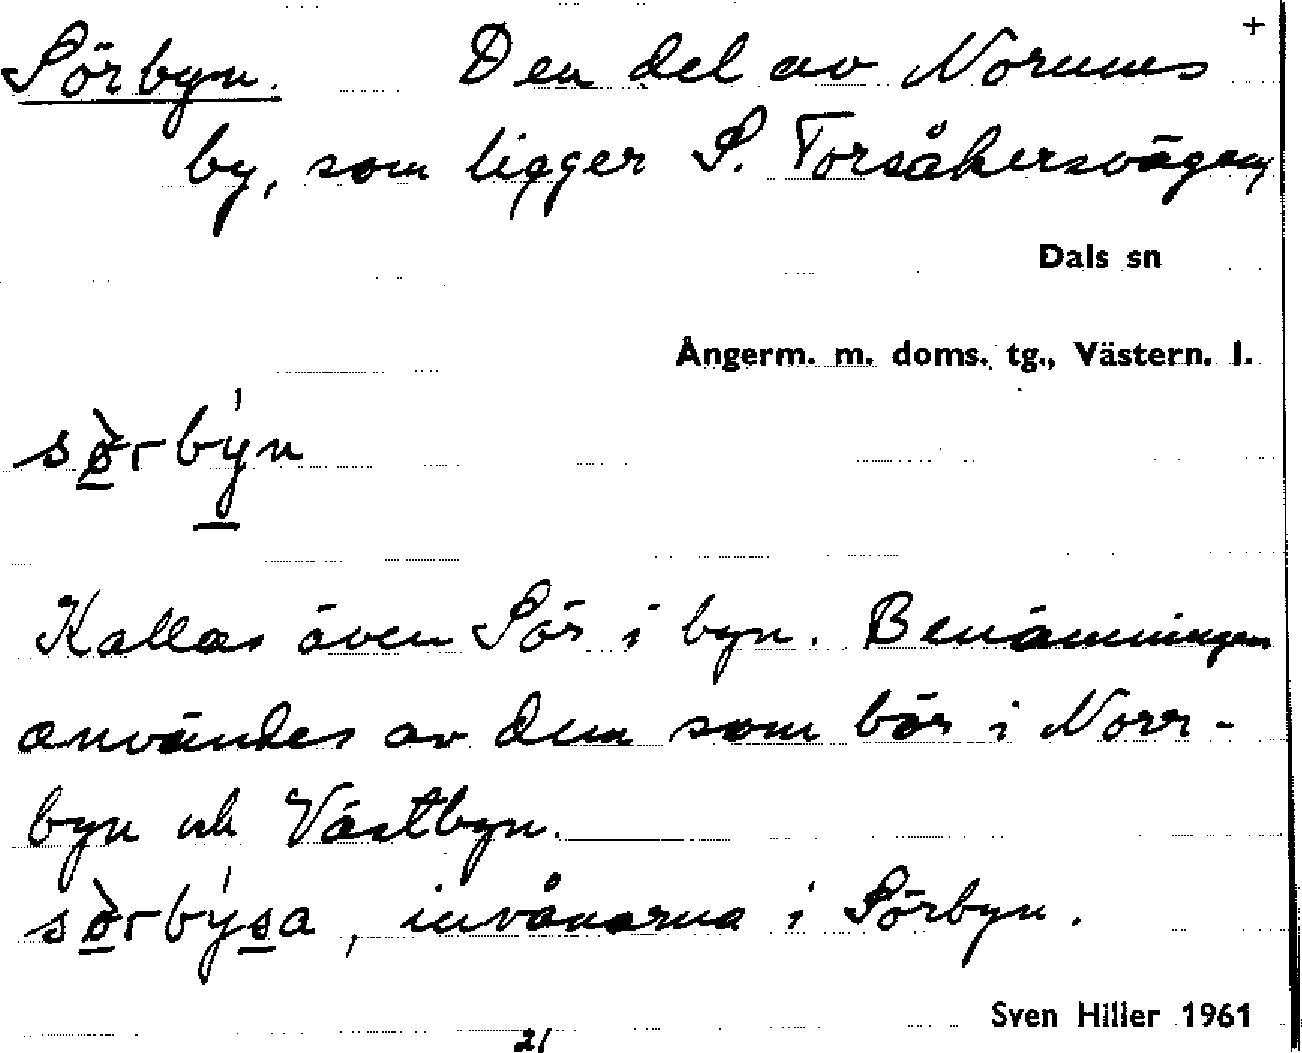 +
Sörbyn. Den del av Norums
by, som ligger S. Torsåkersvägen,
Dals sn
Ångerm. m. doms. tg., Västern. l.
sø̀rbýn
Kallas även Sör i byn. Benämningen
användes av dem som bor i Norr-
byn och Västbyn.
sø̀rbýsa, invånarna i Sörbyn.
Sven Hiller 1961
21